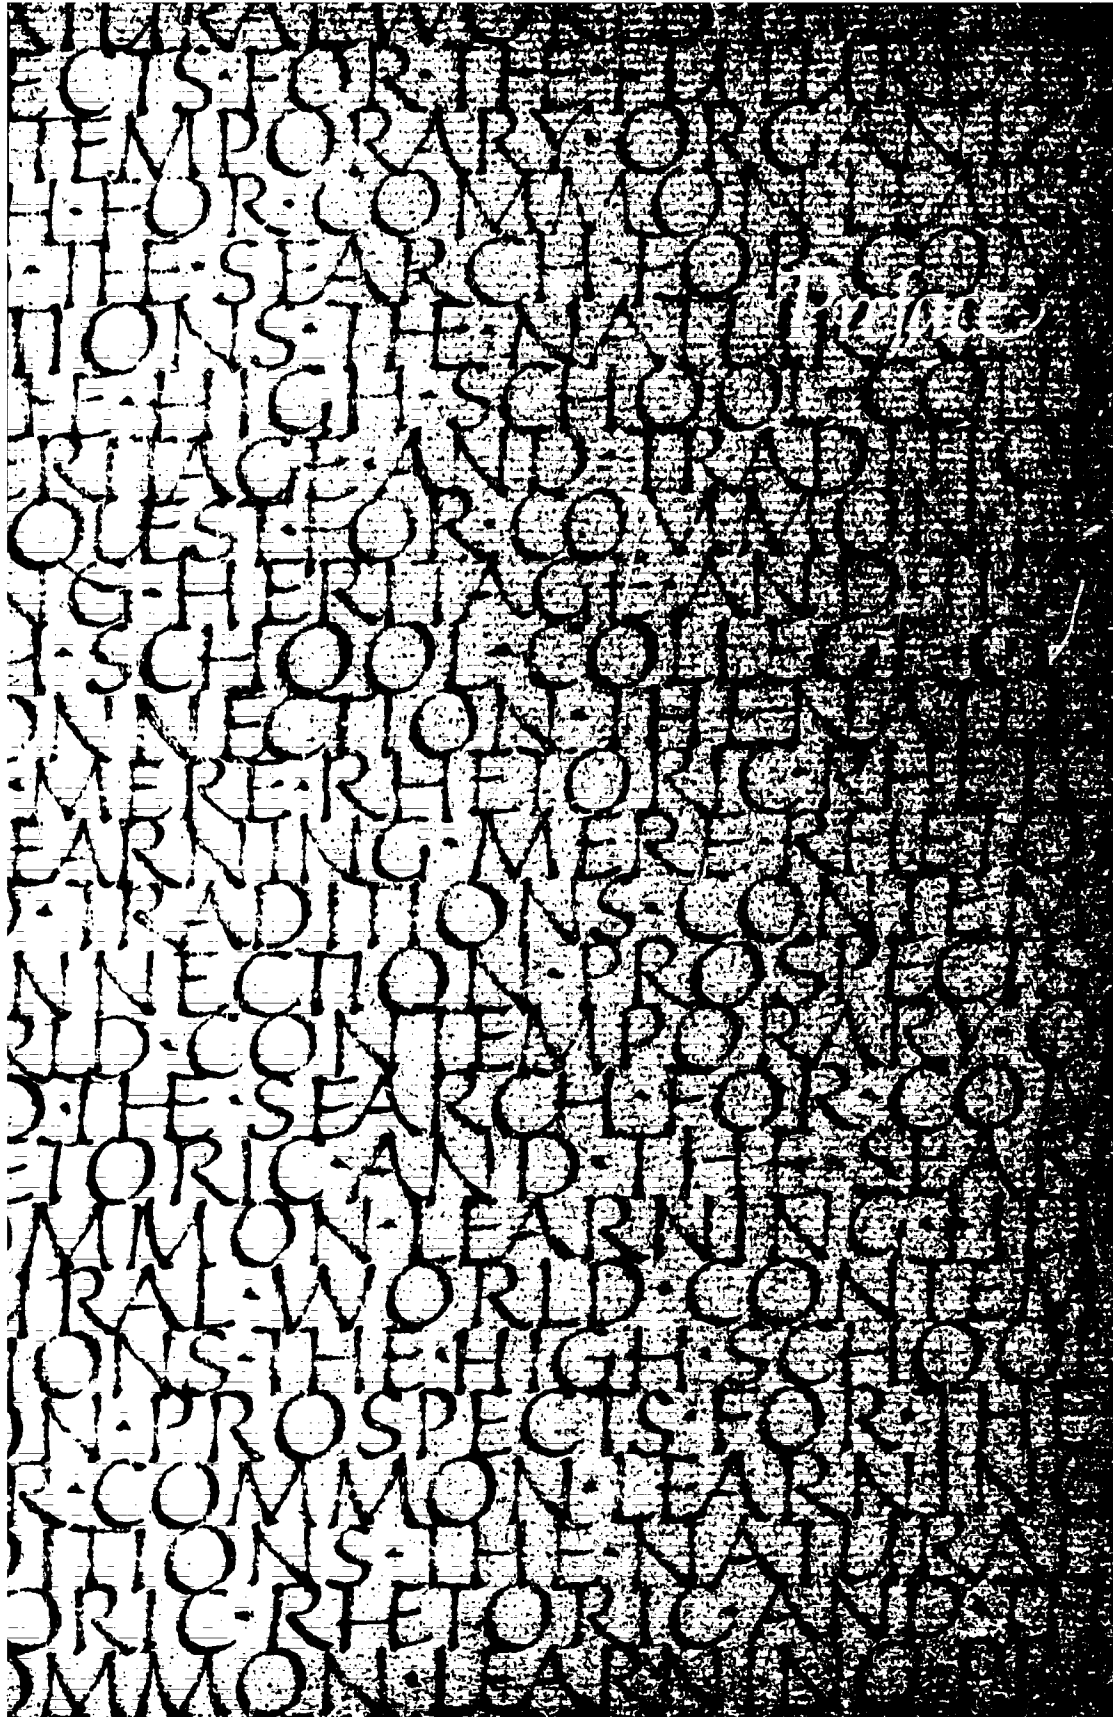 TURAL WORLD
ECTS·FOR·THE·FUTURE
TEMPORARY·ORGANIZ
H·FOR·COMMON·LEAR
·THE·SEARCH·FOR·CO
Preface
TIONS·THE·NATUR
HE·HIGH·SCHOOL·COLL
ERITAGE·AND·TRADITIO
QUEST·FOR·COMMON
NG·HERITAGE·AND·T
H·SCHOOL·COLLEGE·C
ONNECTION·THE·NATU
·MERE·RHETORIC·RHETO
EARNING·MERE·RHETO
E·TRADITIONS·CONTEM
NNECTION·PROSPECTS
RLD·CONTEMPORARY·O
D·THE·SEARCH·FOR·CO
ETORIC·AND·THE·SEAR
OMMON·LEARNING·
URAL·WORLD·CONTEM
IONS·THE·HIGH·SCHOO
ON·PROSPECTS·FOR·THE
R·COMMON·LEARNING
DITIONS·THE·NATURAL
ORIC·RHETORIC·AND·T
OMMON·LEARNING·